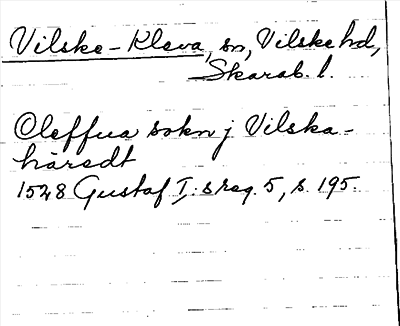 Vilske-Kleva, sn, Vilske hd,
Skarab. l.
Cleffua sokn j Vilska-
häredt
1528 Gustaf I:s reg. 5, s. 195.